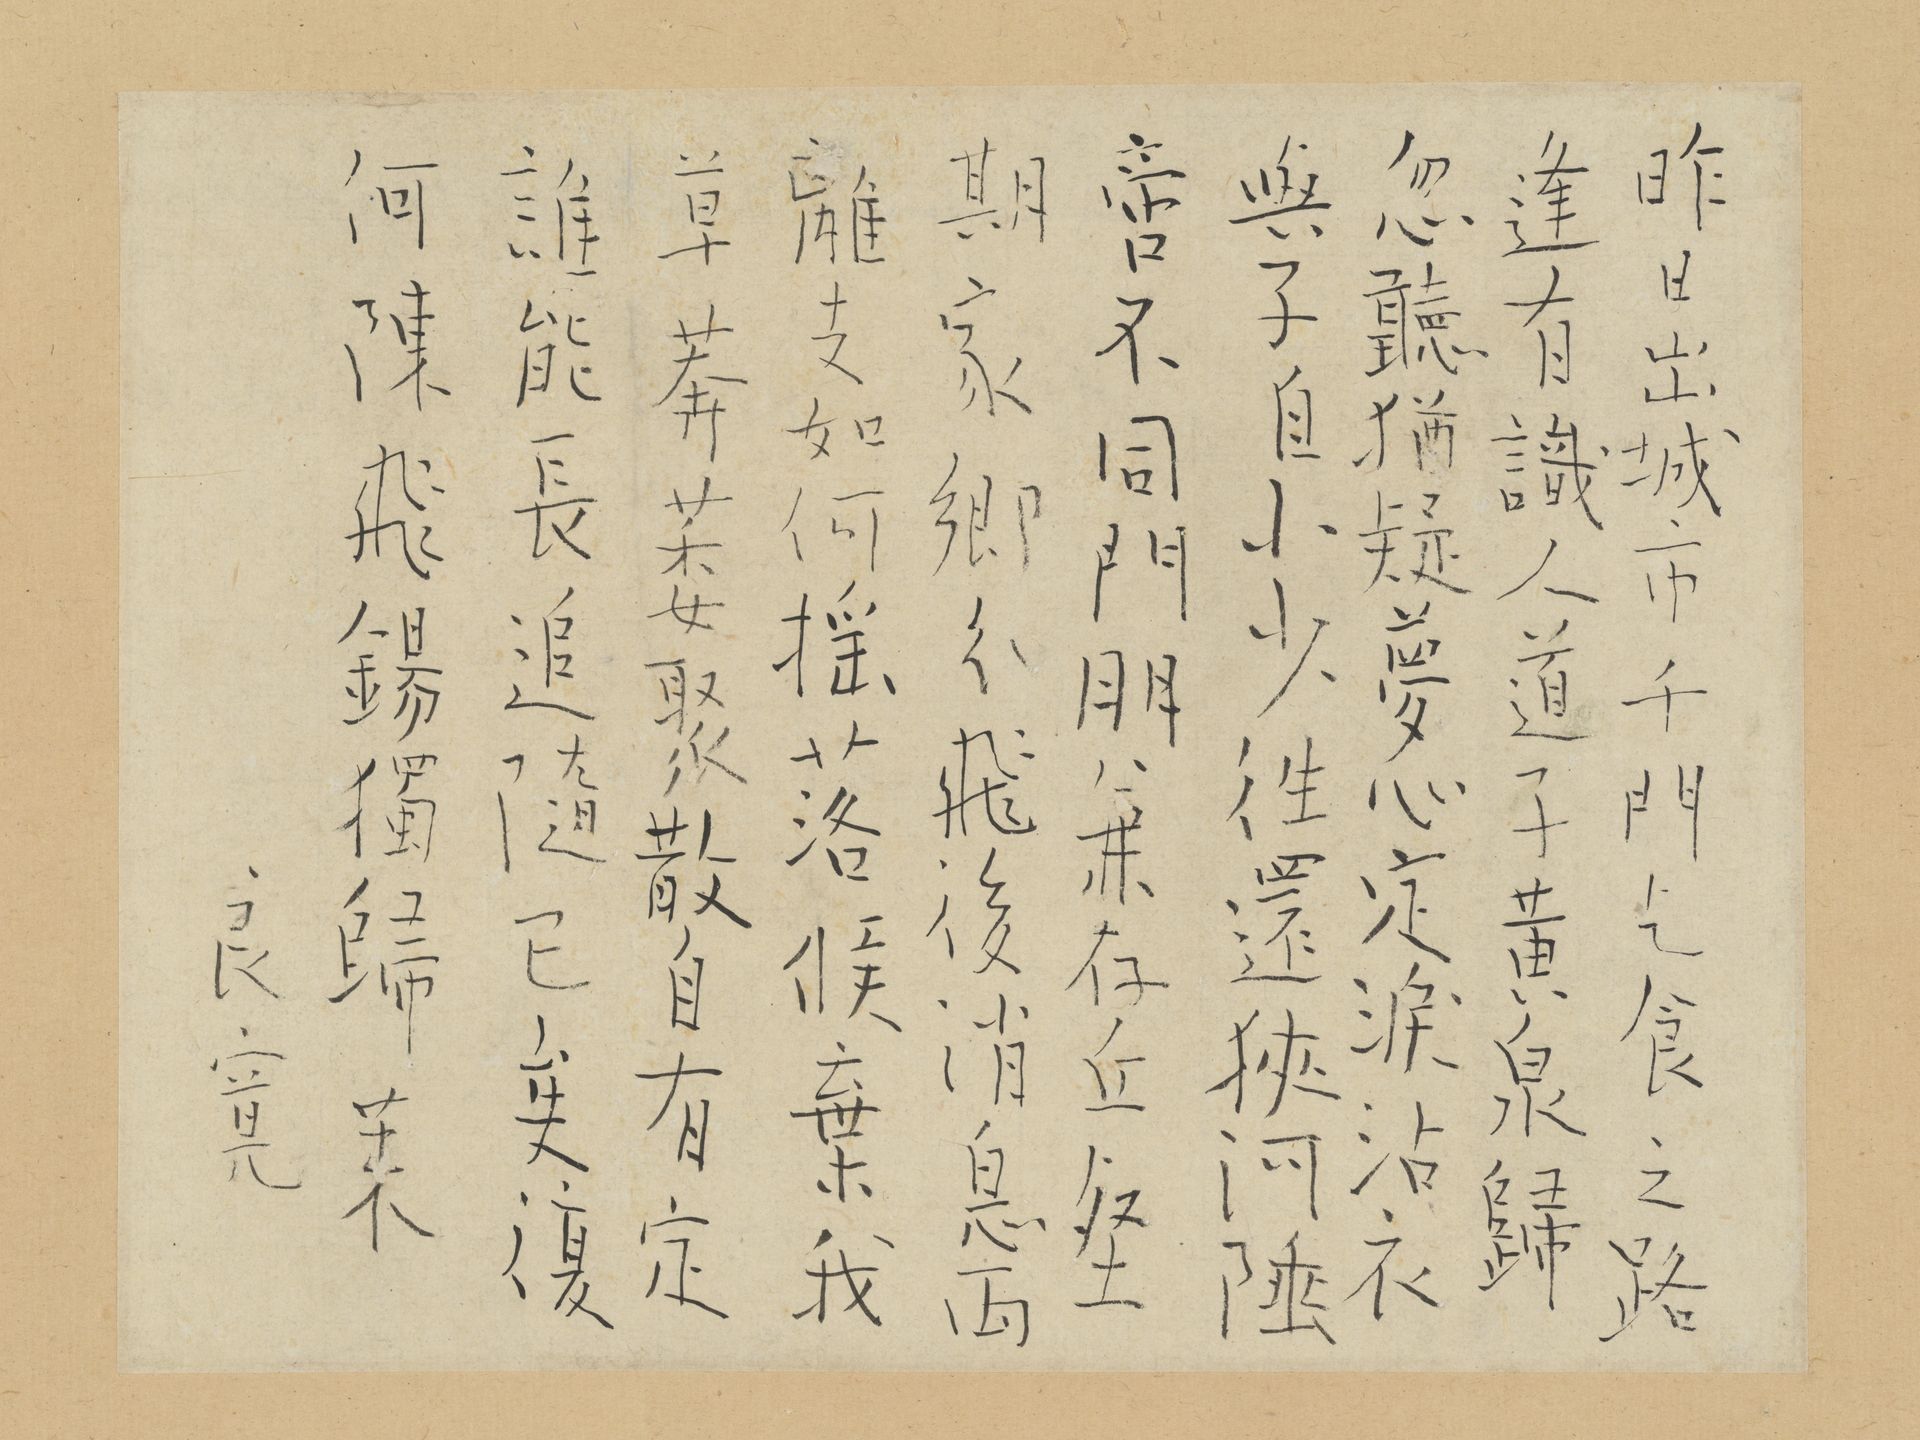 昨日出城市千門乞食之路
逢有識人道子黄泉歸
忽聽猶疑夢心定淚沾衣
與子自小少往還狹河陲
啻不同門朋兼存丘壑
期家鄉分飛後消息両
離支如何摇落候棄我
草莽萎聚散自有定
誰能長追隨已矣復
何陳飛錫獨歸来
良寛